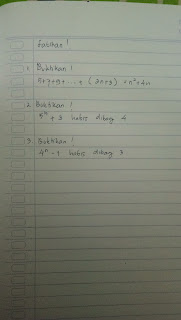 Latihan !
1. Buktikan !
5+7+9+ ..... + (2n+3) = n²+4n
2. Buktikan !
5ⁿ + 3 habis dibagi 4
3. Buktikan !
4ⁿ - 1 habis dibagi 3